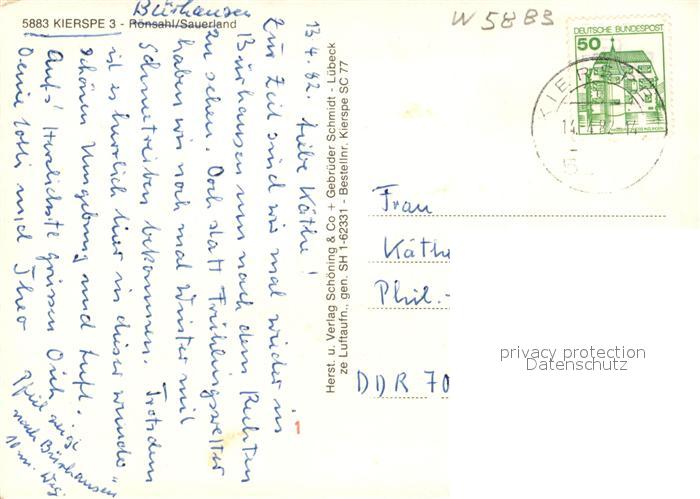 Bürhausen
5883 KIERSPE 3 - Rönsahl/Sauerland
13.4.82. Liebe Käthe!
Zur Zeit sind wir mal wieder in
Bürhausen um nach dem Rechten
zu sehen. Doch statt Frühlingswetter
haben wir noch mal Winter mit
Schneetreiben bekommen. Trotzdem
ist es herrlich hier in dieser wunder-
schönen Umgebung und Luft.
Aufs Herzlichste grüssen Dich
Deine Lotti und Theo
Pfeil zeigt
nach Bürhausen
10 m. Weg.
Herst. u. Verlag Schöning & Co + Gebrüder Schmidt - Lübeck
ze Luftaufn., gen. SH 1-62331 - Bestellnr. Kierspe SC 77
W 5883
DEUTSCHE BUNDESPOST
50
KIERSPE
Frau
Käthe
Phil.-
DDR 70
privacy protection
Datenschutz